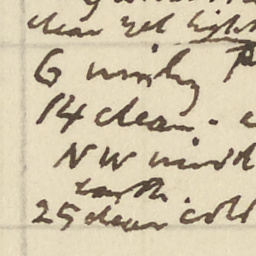 clear yet light
6 windy
14 clear - c
NW wind
earth
25 clear cold